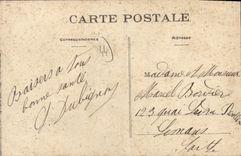 CARTE POSTALE
Correspondance
Adresse
Baisers à tous
bonne santé
J. Dubignon
Madame et Monsieur
Marcel
123 quai
Le Mans
Sarthe